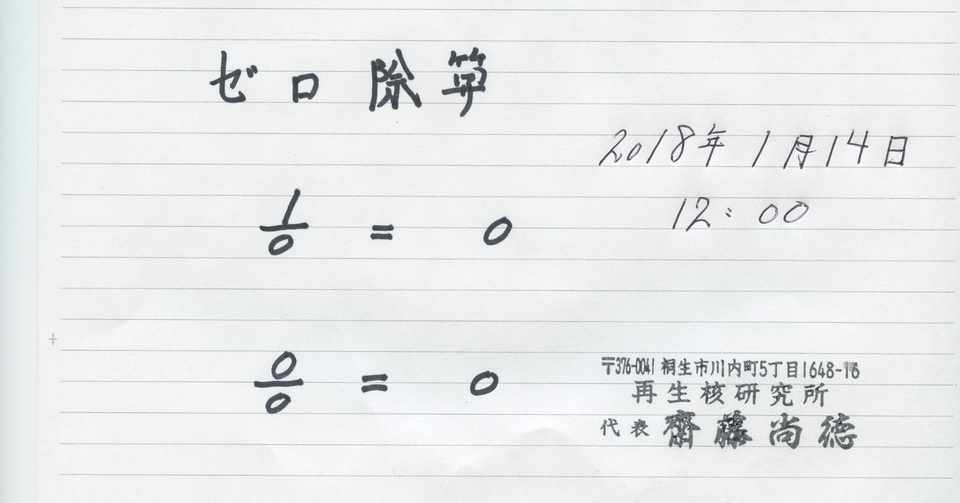 ゼロ除算
2018年1月14日
12:00
1/0 = 0
0/0 = 0
〒376-0041 桐生市川内町5丁目1648-16
再生核研究所
代表 齋藤尚徳